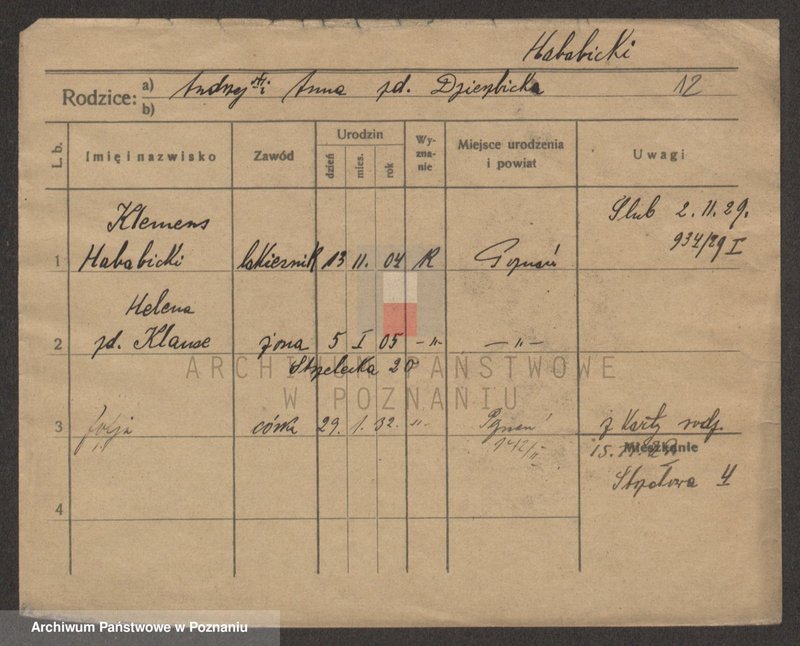 Hababicki
Rodzice: a) b) Andrzej i Anna zd. Dzierzbicka 12
L. b. Imię i nazwisko Zawód Urodzin dzień mies. rok Wy-zna-nie Miejsce urodzenia i powiat Uwagi
Klemens Ślub 2. 11. 29.
934/29 I
1 Hababicki lakiernik 13 11. 04 R Poznań
Helena
2 zd. Klause żona 5 I 05 -"- -"-
Strzelecka 20
ARCHIWUM PAŃSTWOWE
W POZNANIU
3 córka 29. 1. 32. -"- Poznań z Karty rodz.
142/II Mieszkanie
Strzałowa 4
4
Archiwum Państwowe w Poznaniu